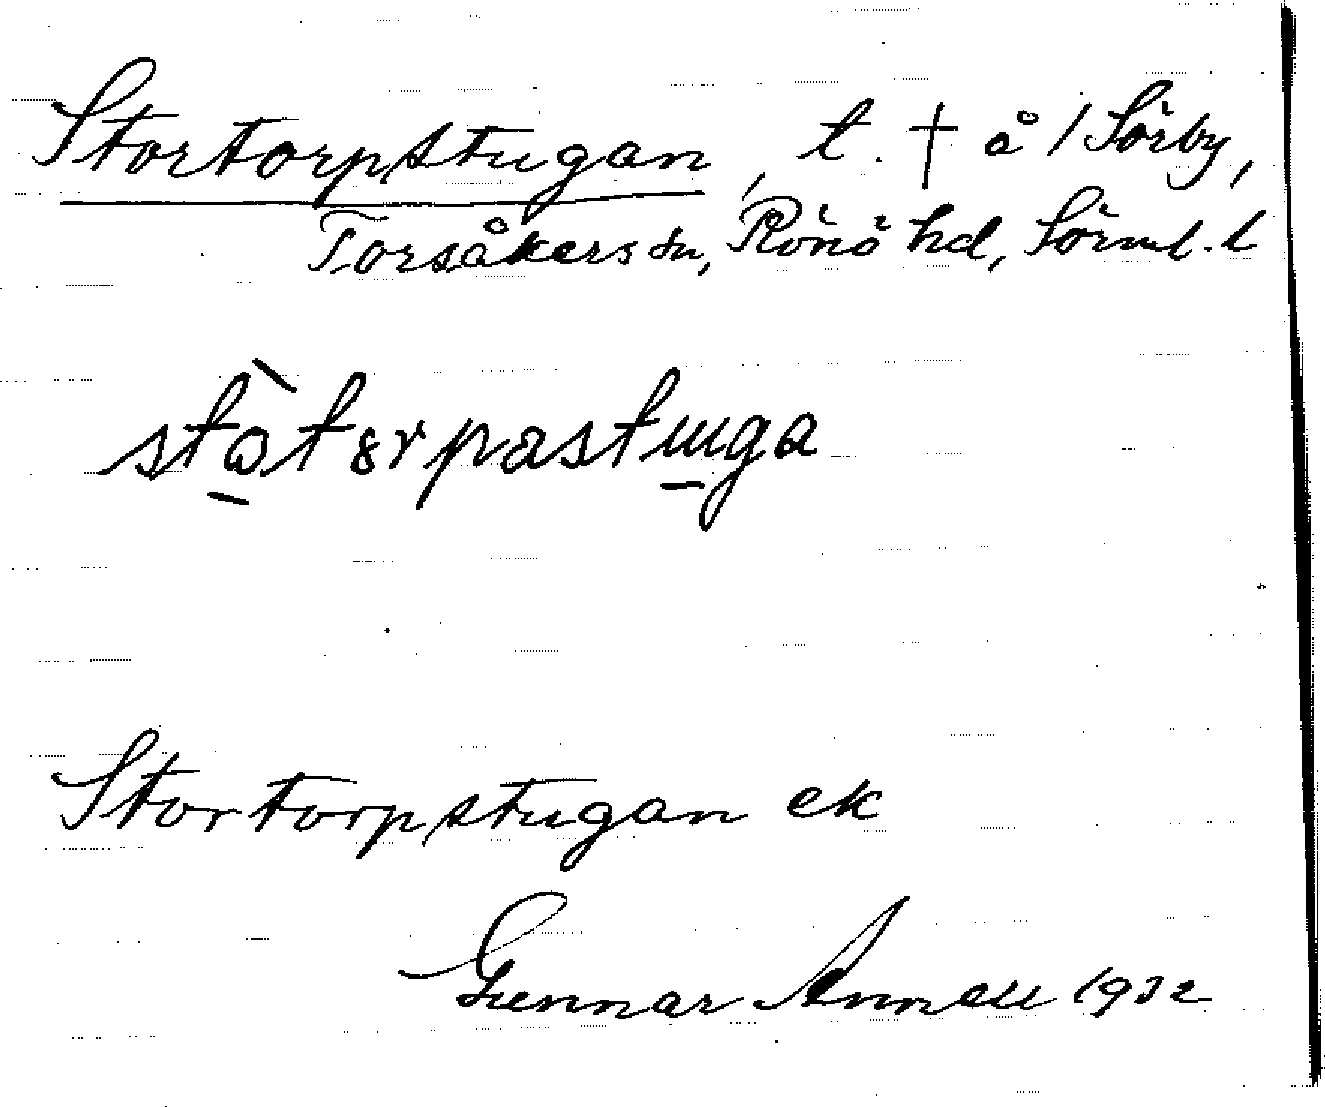 Stortorpstugan, t. † å 1 Sörby,
Torsåkers sn, Rönö hd, Sörml. l
Stortorpstugan ek
Gunnar Annell 1932